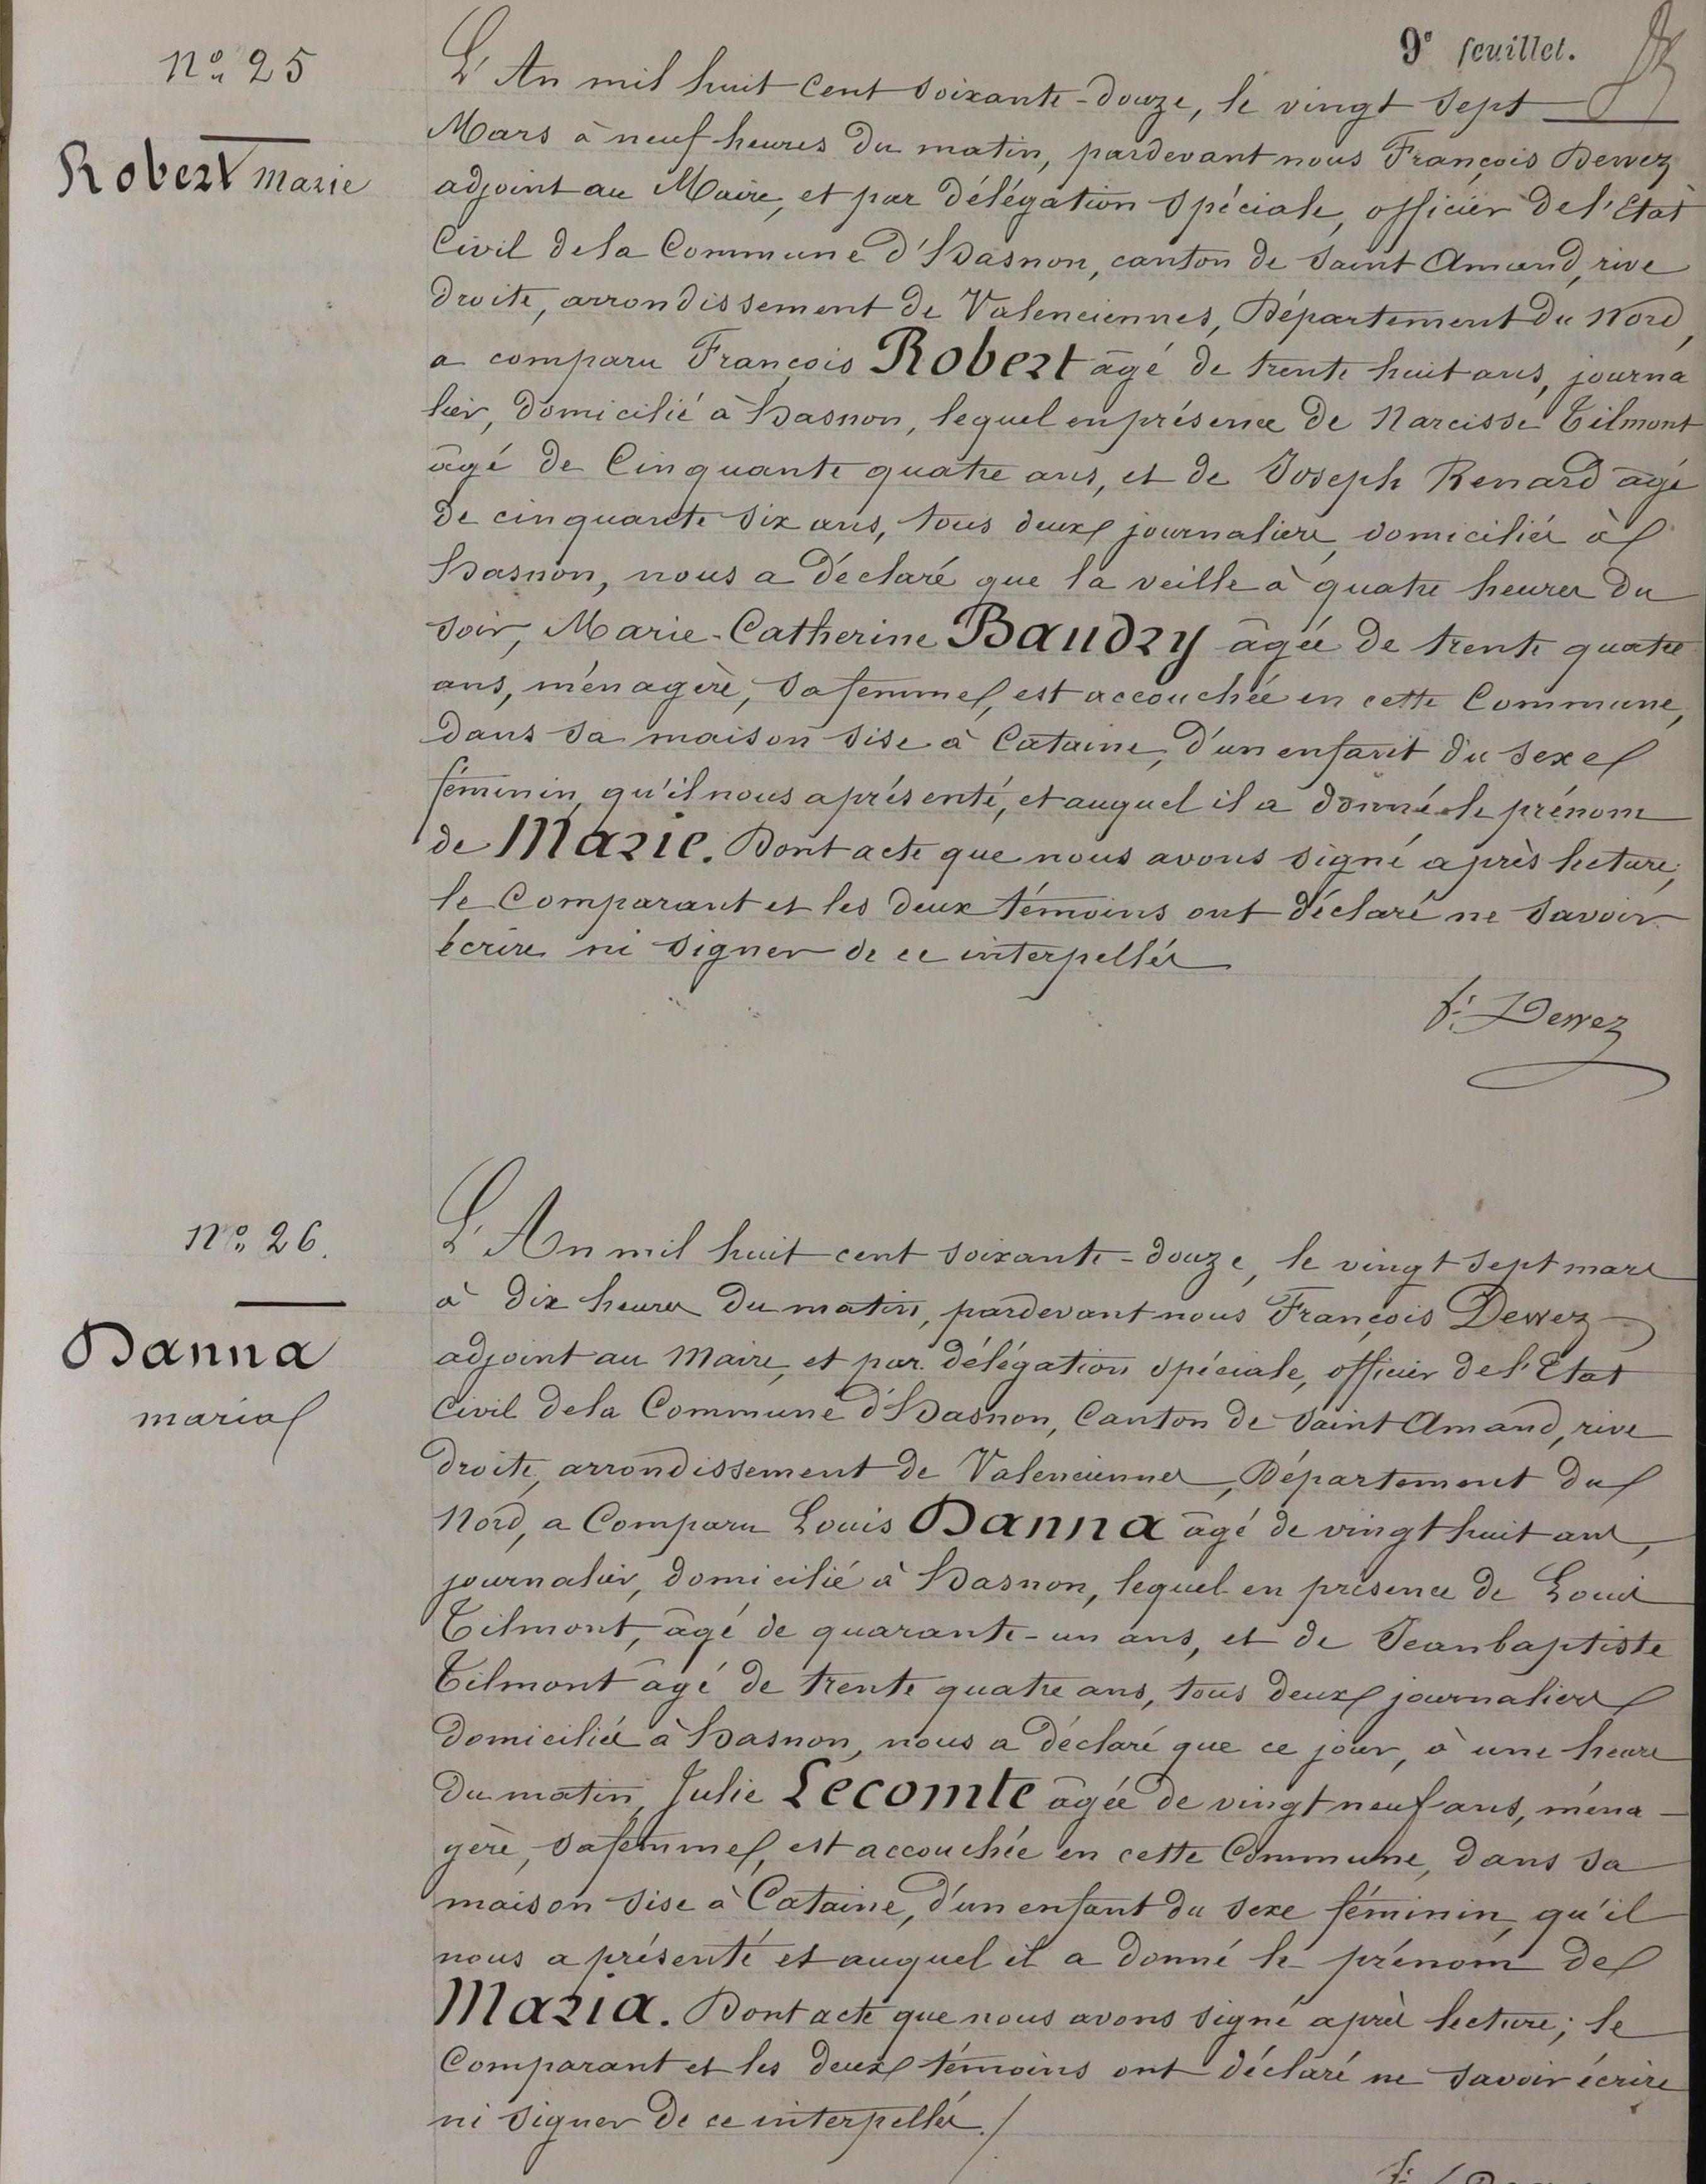 9e feuillet.
No. 25
Robert marie
L'An mil huit Cent soixante-douze, le vingt sept
Mars à neuf heures du matin, pardevant nous François Dewez
adjoint au Maire, et par délégation spéciale, officier de l'Etat
Civil de la Commune d'Hasnon, canton de Saint Amand, rive
droite, arrondissement de Valenciennes, Département du Nord,
a comparu François Robert âgé de trente huit ans, journa
lier, domicilié à Hasnon, lequel en présence de Narcisse Tilmont
âgé de Cinquante quatre ans, et de Joseph Renard âgé
de cinquante six ans, tous deux journaliers, domiciliés à
Hasnon, nous a déclaré que la veille à quatre heures du
soir, Marie-Catherine Baudry âgée de trente quatre
ans, ménagère, sa femme, est accouchée en cette Commune,
dans sa maison sise à Cataine, d'un enfant du sexe
féminin, qu'il nous a présenté, et auquel il a donné le prénom
de Marie. Dont acte que nous avons signé après lecture;
le Comparant et les deux témoins ont déclaré ne savoir
écrire ni signer de ce interpellés
f. Dewez
No. 26.
Danna
maria
L'An mil huit cent soixante-douze, le vingt sept mars
à dix heures du matin, pardevant nous François Dewez
adjoint au Maire, et par délégation spéciale, officier de l'Etat
Civil de la Commune d'Hasnon, Canton de Saint Amand, rive
droite, arrondissement de Valenciennes, Département du
Nord, a Comparu Louis Danna âgé de vingt huit ans,
journalier, domicilié à Hasnon, lequel en présence de Louis
Tilmont, âgé de quarante-un ans, et de Jean baptiste
Tilmont âgé de trente quatre ans, tous deux journaliers
domiciliés à Hasnon, nous a déclaré que ce jour, à une heure
du matin, Julie Lecomte âgée de vingt neuf ans, ména-
gère, sa femme, est accouchée en cette Commune, dans sa
maison sise à Cataine, d'un enfant du sexe féminin, qu'il
nous a présenté et auquel il a donné le prénom de
Maria. Dont acte que nous avons signé après lecture; le
Comparant et les deux témoins ont déclaré ne savoir écrire
ni signer de ce interpellés./